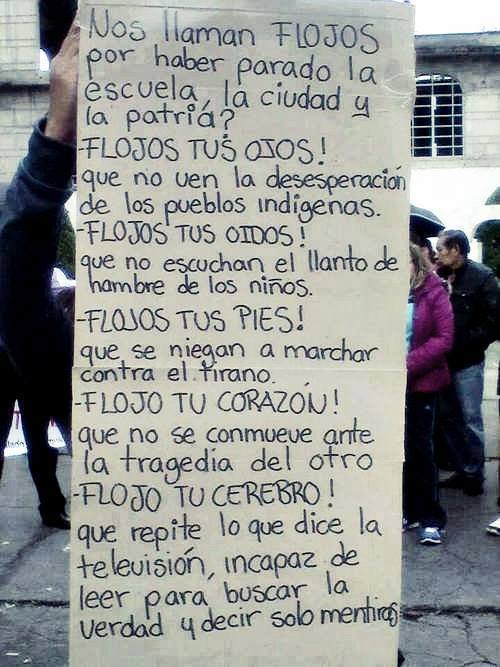 Nos llaman FLOJOS
por haber parado la
escuela, la ciudad y
la patria?
-FLOJOS TUS OJOS!
que no ven la desesperación
de los pueblos indígenas.
-FLOJOS TUS OIDOS!
que no escuchan el llanto de
hambre de los niños.
-FLOJOS TUS PIES!
que se niegan a marchar
contra el tirano.
-FLOJO TU CORAZÓN!
que no se conmueve ante
la tragedia del otro
-FLOJO TU CEREBRO!
que repite lo que dice la
televisión, incapaz de
leer para buscar la
verdad y decir solo mentiras